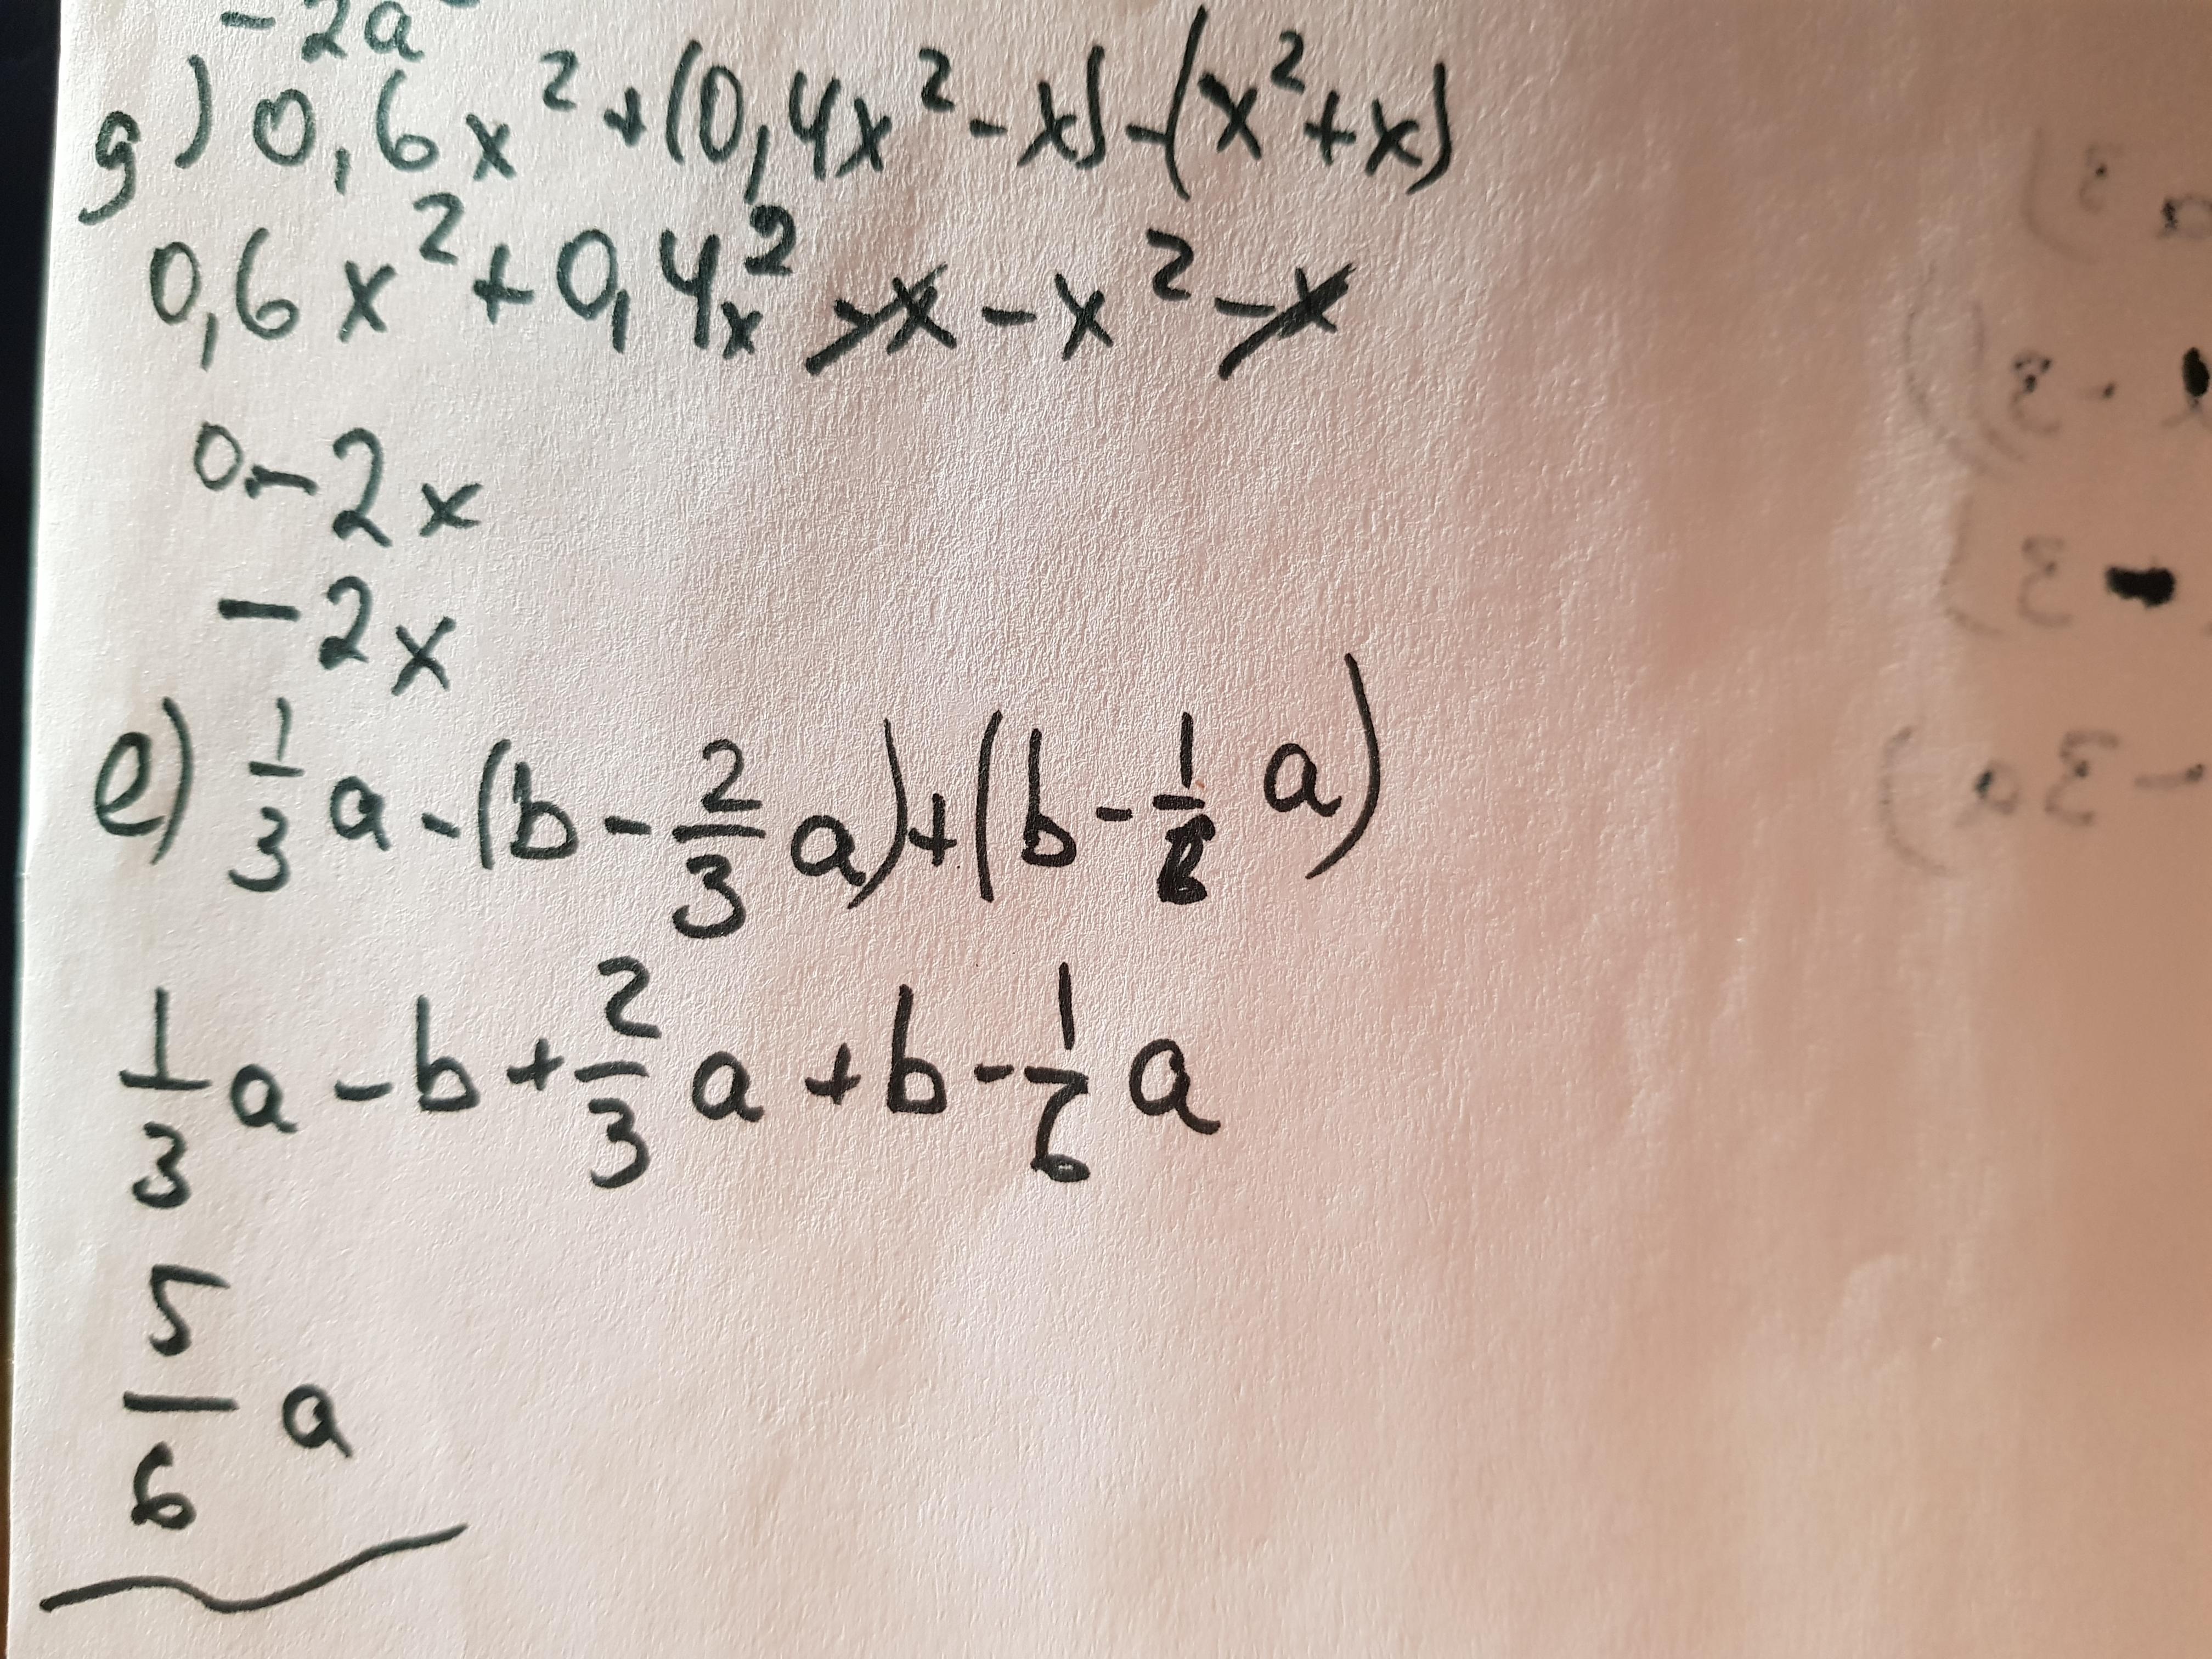 -2a
g) 0,6x² + (0,4x² - x) - (x² + x)
0,6x² + 0,4x² - x - x² - x
0 - 2x
- 2x
e) 1/3 a - (b - 2/3 a) + (b - 1/6 a)
1/3 a - b + 2/3 a + b - 1/6 a
5/6 a